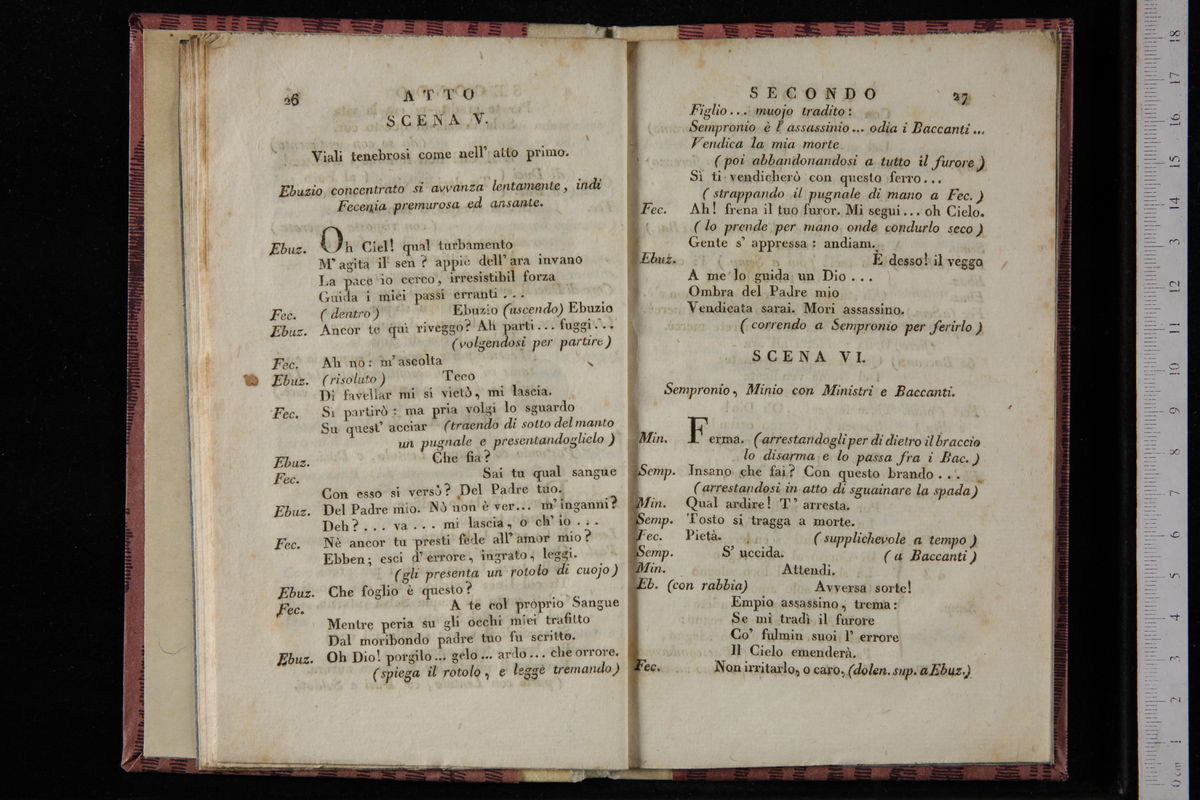 26
ATTO
SCENA V.
Viali tenebrosi come nell' atto primo.
Ebuzio concentrato si avvanza lentamente, indi
Fecenia premurosa ed ansante.
Ebuz. Oh Ciel! qual turbamento
M' agita il sen? appiè dell' ara invano
La pace io cerco, irresistibil forza
Guida i miei passi erranti . . .
Fec. (dentro) Ebuzio (uscendo) Ebuzio
Ebuz. Ancor te qui riveggo? Ah parti... fuggi...
(volgendosi per partire)
Fec. Ah no: m' ascolta
Ebuz. (risoluto) Teco
Di favellar mi si vietò, mi lascia.
Fec. Si partirò: ma pria volgi lo sguardo
Su quest' acciar (traendo di sotto del manto
un pugnale e presentandoglielo)
Ebuz. Che fia?
Fec. Sai tu qual sangue
Con esso si versò? Del Padre tuo.
Ebuz. Del Padre mio. Nò non è ver... m' inganni?
Deh? . . . va . . . mi lascia, o ch' io . . .
Fec. Nè ancor tu presti fede all' amor mio?
Ebben; esci d' errore, ingrato, leggi.
(gli presenta un rotolo di cuojo)
Ebuz. Che foglio è questo?
Fec. A te col proprio Sangue
Mentre peria su gli occhi miei trafitto
Dal moribondo padre tuo fu scritto.
Ebuz. Oh Dio! porgilo... gelo... ardo... che orrore.
(spiega il rotolo, e legge tremando)
SECONDO
27
Figlio... muojo tradito:
Sempronio è l' assassinio... odia i Baccanti...
Vendica la mia morte
(poi abbandonandosi a tutto il furore)
Si ti vendicherò con questo ferro...
(strappando il pugnale di mano a Fec.)
Fec. Ah! frena il tuo furor. Mi segui... oh Cielo.
(lo prende per mano onde condurlo seco)
Gente s' appressa: andiam.
Ebuz. È desso! il veggo
A me lo guida un Dio . . .
Ombra del Padre mio
Vendicata sarai. Mori assassino.
(correndo a Sempronio per ferirlo)
SCENA VI.
Sempronio, Minio con Ministri e Baccanti.
Min. Ferma. (arrestandogli per di dietro il braccio
lo disarma e lo passa fra i Bac.)
Semp. Insano che fai? Con questo brando . . .
(arrestandosi in atto di sguainare la spada)
Min. Qual ardire! T' arresta.
Semp. Tosto si tragga a morte.
Fec. Pietà. (supplichevole a tempo)
Semp. S' uccida. (a Baccanti)
Min. Attendi.
Eb. (con rabbia) Avversa sorte!
Empio assassino, trema:
Se mi tradì il furore
Co' fulmin suoi l' errore
Il Cielo emenderà.
Fec. Non irritarlo, o caro, (dolen. sup. a Ebuz.)
0 cm 1 2 3 4 5 6 7 8 9 10 11 12 13 14 15 16 17 18